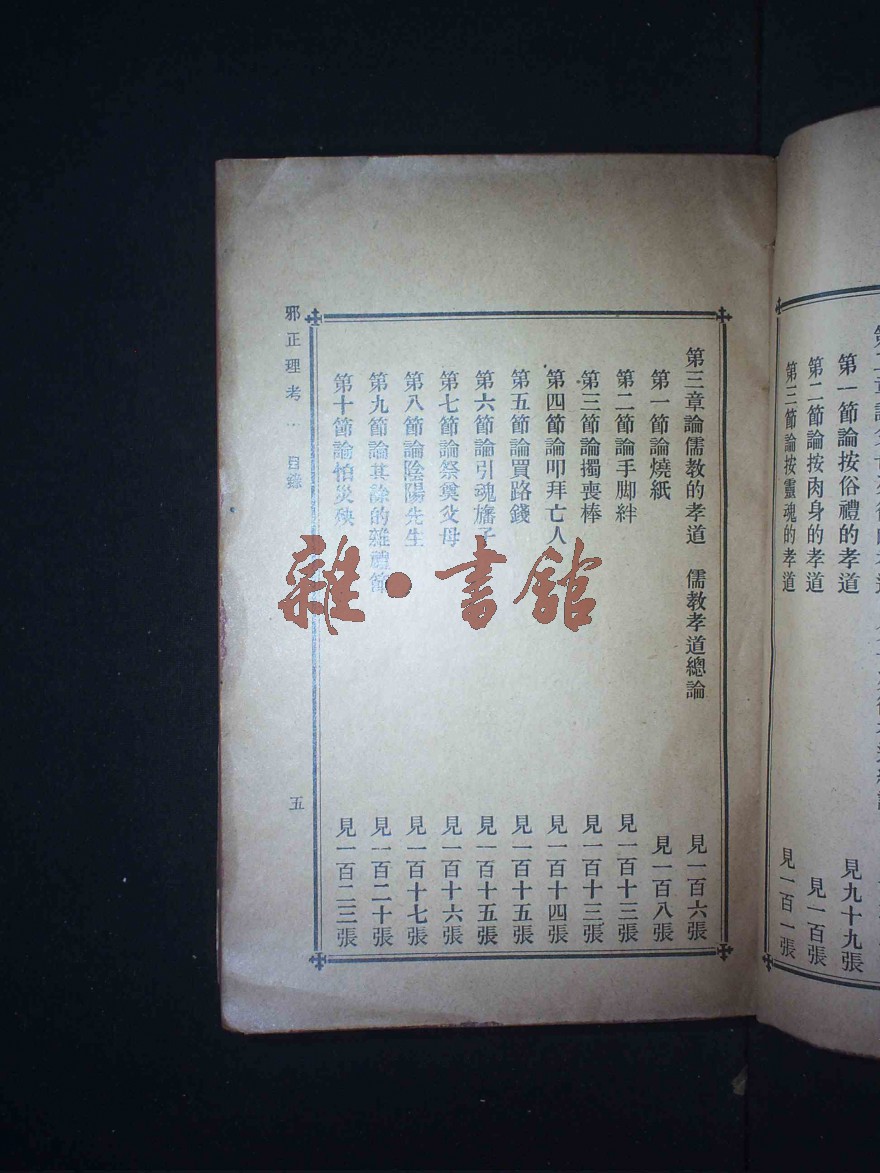 第一節論按俗禮的孝道 見九十九張
第二節論按肉身的孝道 見一百張
第三節論按靈魂的孝道 見一百一張
第三章論儒教的孝道 儒教孝道總論 見一百六張
第一節論燒紙 見一百八張
第二節論手脚絆 見一百十三張
第三節論擉喪棒 見一百十三張
第四節論叩拜亡人 見一百十四張
第五節論買路錢 見一百十五張
第六節論引魂旛子 見一百十五張
第七節論祭奠父母 見一百十六張
第八節論陰陽先生 見一百十七張
第九節論其餘的雜禮節 見一百二十張
第十節論怕災殃 見一百二三張
邪正理考 目錄 五
雜·書館